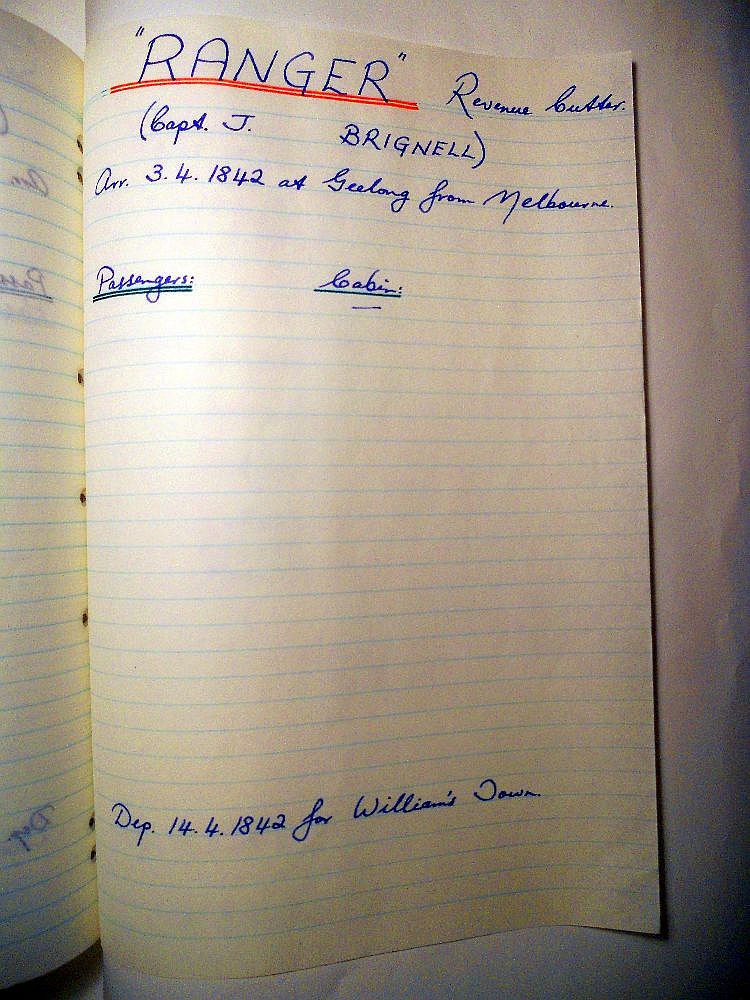 "RANGER" Revenue Cutter.
(Capt. J. BRIGNELL)
Arr. 3.4.1842 at Geelong from Melbourne.
Passengers: Cabin:
—
Dep. 14.4.1842 for William's Town.
Dep.